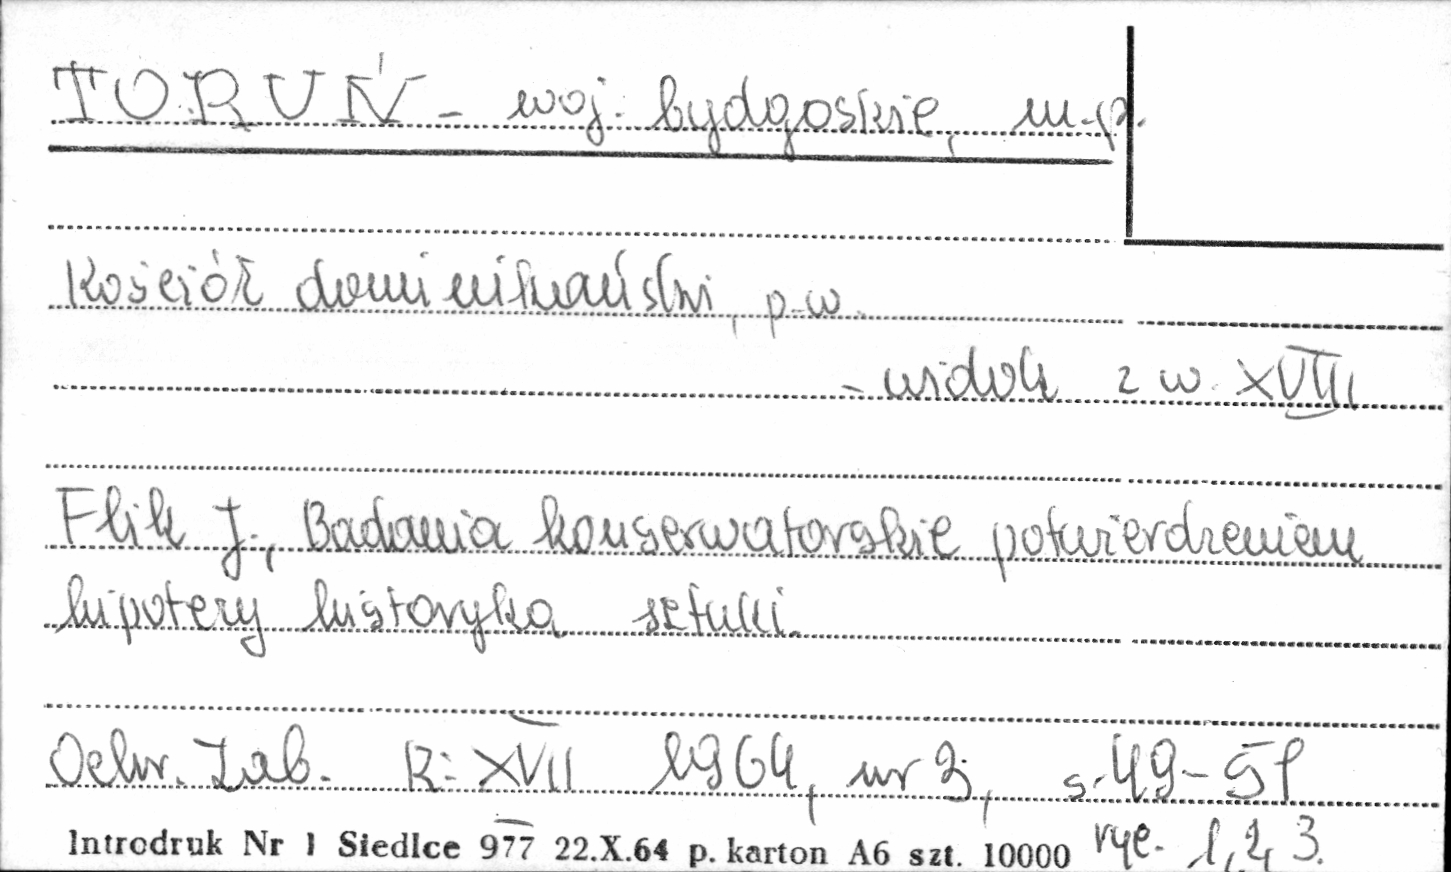 TORUŃ - woj. bydgoskie, m.p.
Kościół dominikański, p.w.
- widok z w. XVIII
Flik J., Badania konserwatorskie potwierdzeniem
hipotezy historyka sztuki.
Ochr. Zab. R: XVII 1964, nr 3, s. 49-51
ryc. 1, 2, 3.
Introdruk Nr 1 Siedlce 977 22.X.64 p. karton A6 szt. 10000